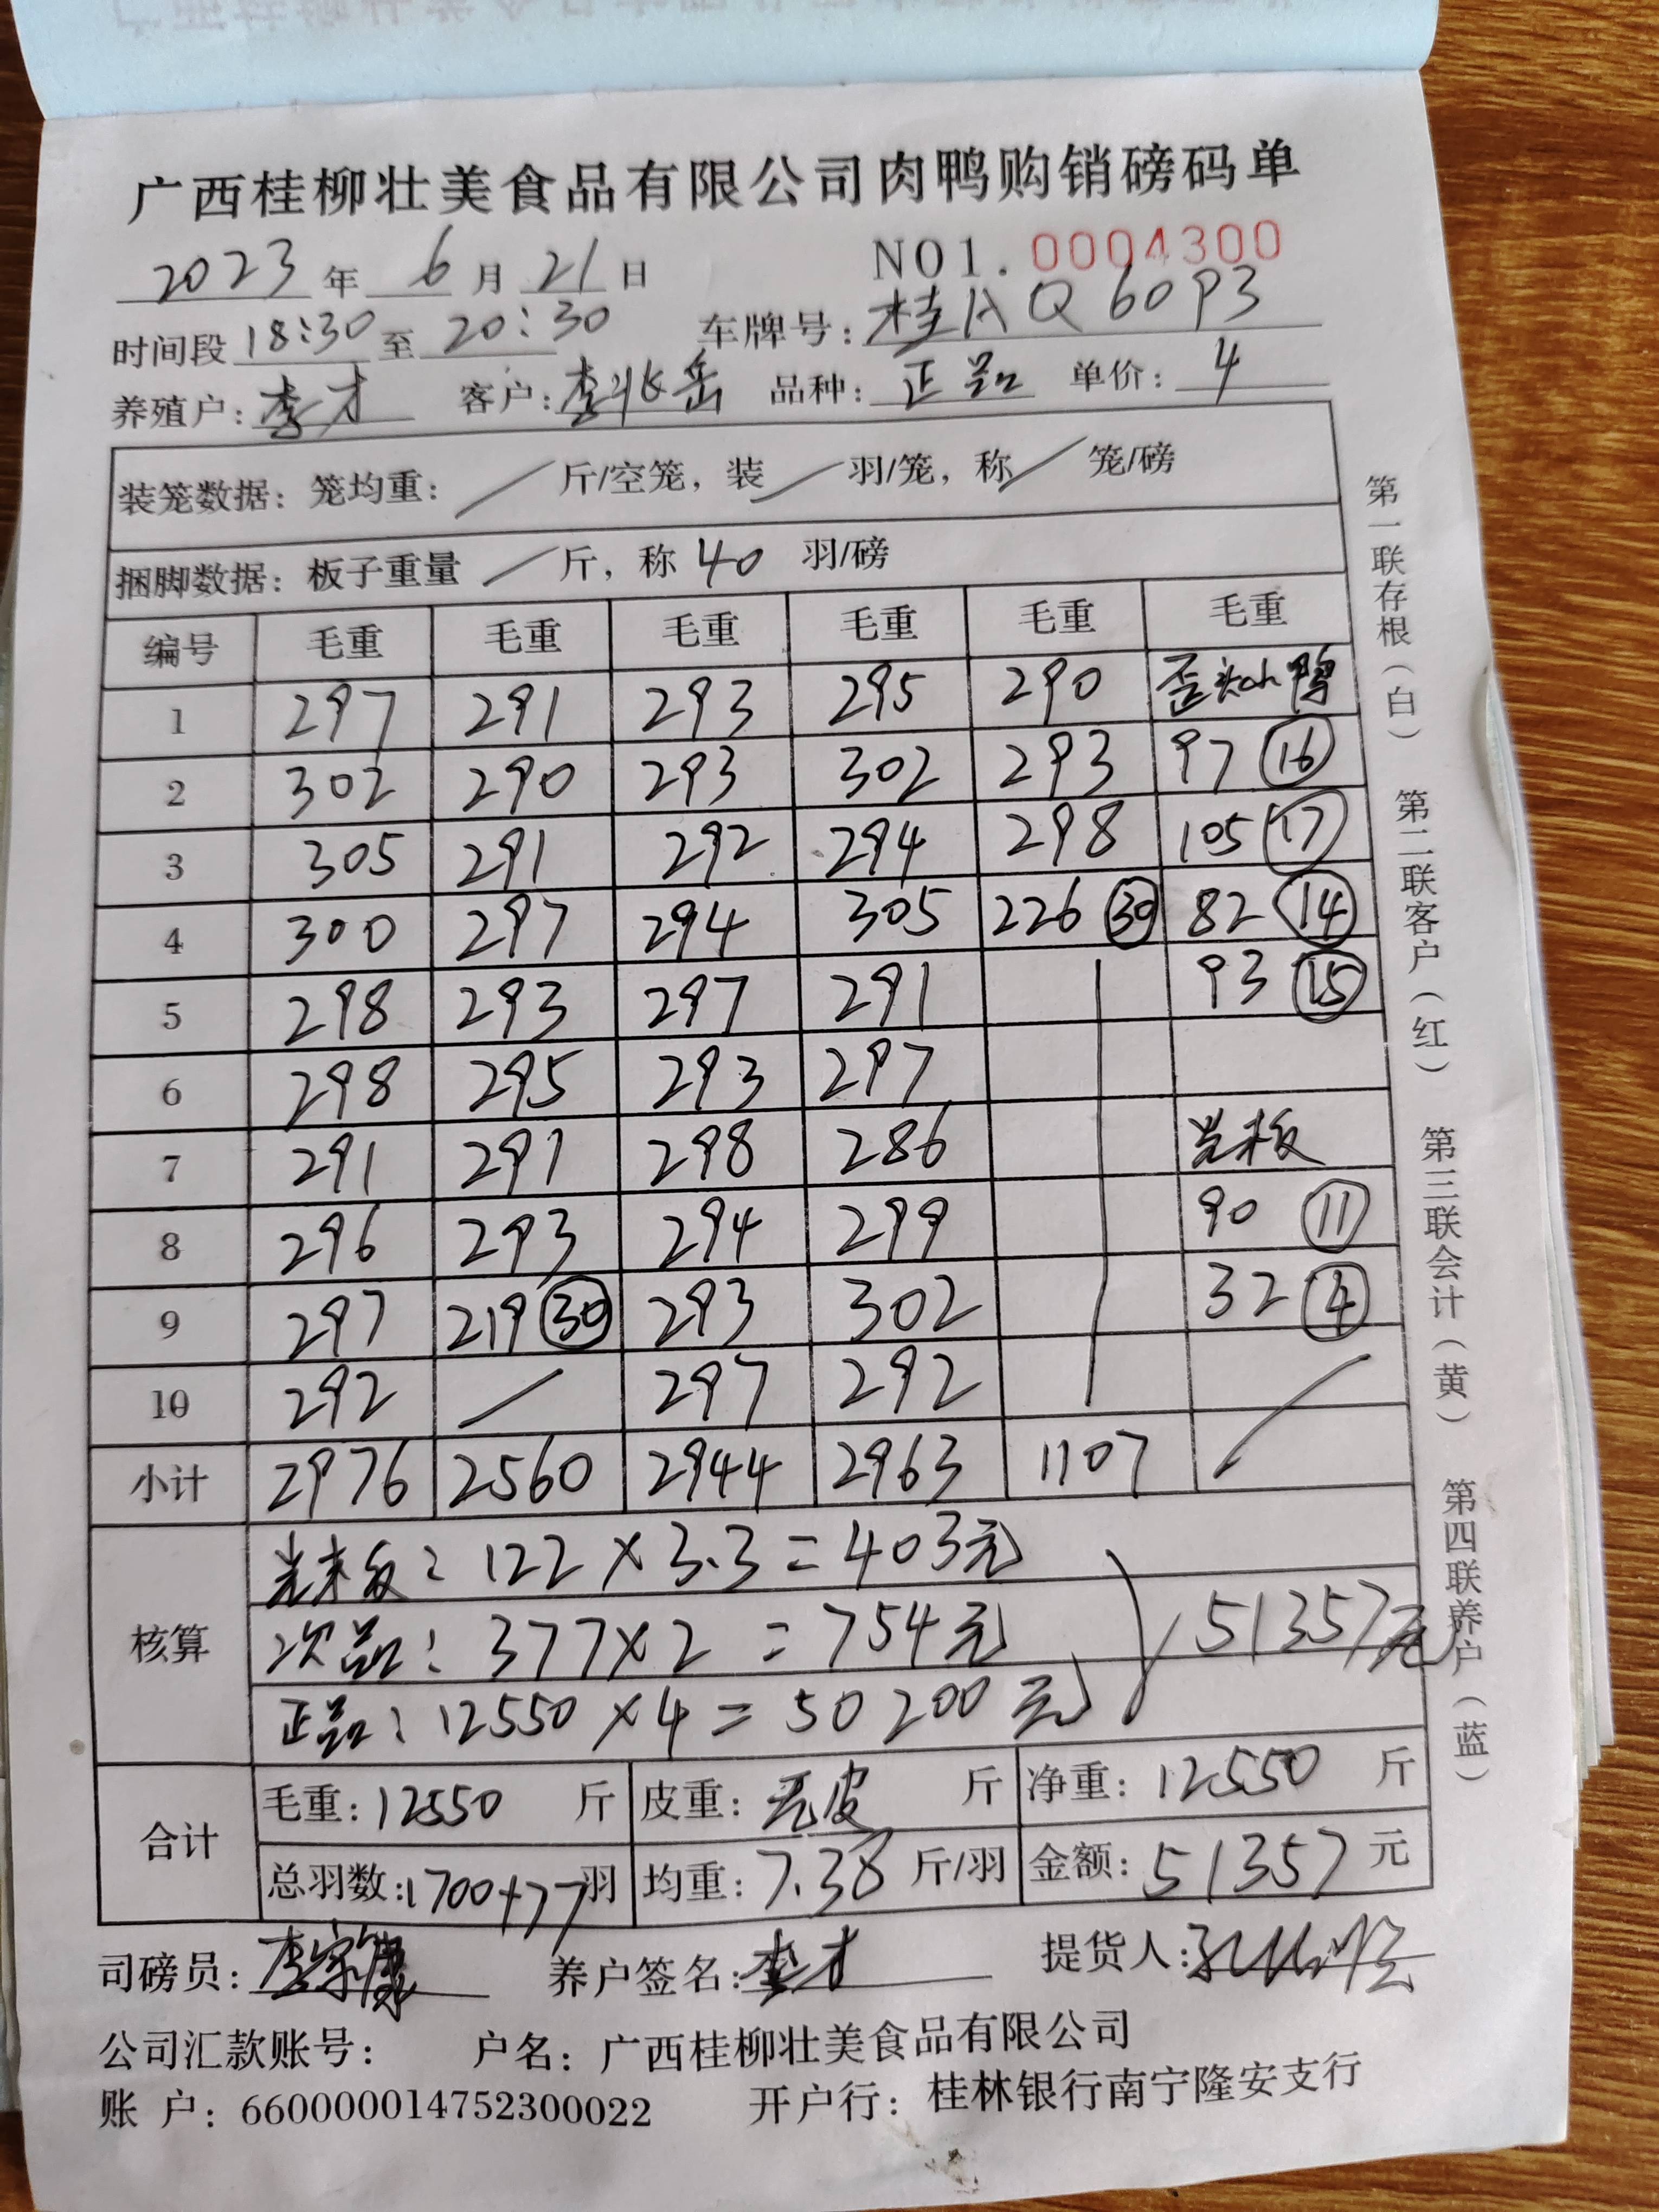 广西桂柳壮美食品有限公司肉鸭购销磅码单
2023年6月21日 NO1.0004300
时间段18:30至20:30 车牌号:桂AQ60P3
养殖户:李才 客户:李兆岳 品种:正品 单价:4
装笼数据:笼均重:/斤/空笼,装/羽/笼,称/笼/磅
捆脚数据:板子重量/斤,称40羽/磅
编号 毛重 毛重 毛重 毛重 毛重 毛重
1 297 291 293 295 290 歪头小鸭
2 302 290 293 302 293 97 16
3 305 291 292 294 298 105 17
4 300 297 294 305 226 30 82 14
5 298 293 297 291 93 15
6 298 295 293 297
7 291 291 298 286 光板
8 296 293 294 299 90 11
9 297 219 30 293 302 32 4
10 292 / 297 292
小计 2976 2560 2944 2963 1107 /
核算
光板:122×3.3=403元
次品:377×2=754元
正品:12550×4=50200元
51357元
合计
毛重:12550斤 皮重:无皮斤 净重:12550斤
总羽数:1700+77羽 均重:7.38斤/羽 金额:51357元
司磅员: 养户签名:李才 提货人:
公司汇款账号: 户名:广西桂柳壮美食品有限公司
账户:660000014752300022 开户行:桂林银行南宁隆安支行
第一联存根(白) 第二联客户(红) 第三联会计(黄) 第四联养户(蓝)